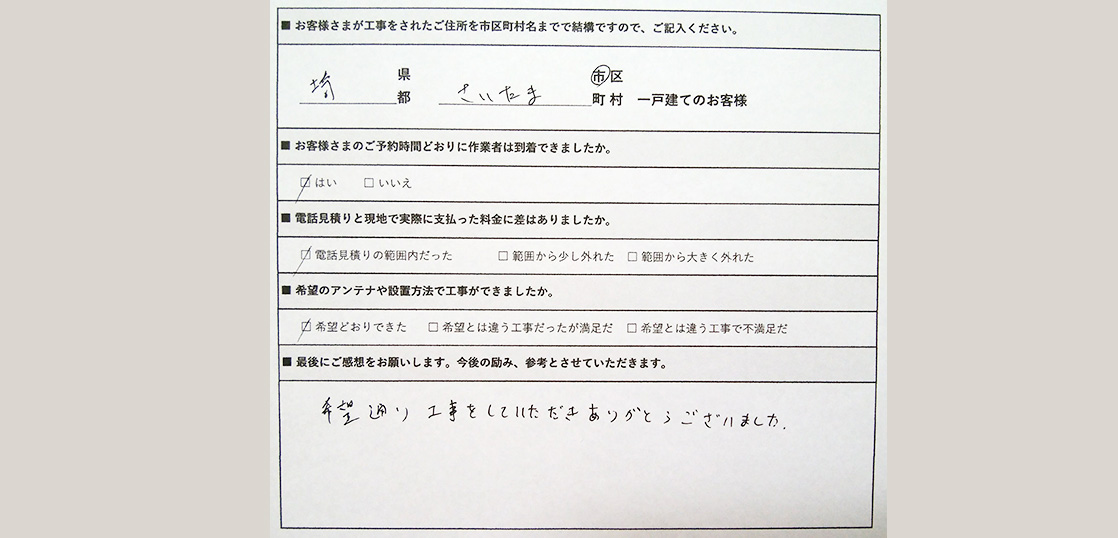 ■ お客様さまが工事をされたご住所を市区町村名までで結構ですので、ご記入ください。
埼 県 さいたま 市 区
都 町 村 一戸建てのお客様
■ お客様さまのご予約時間どおりに作業者は到着できましたか。
☑ はい □ いいえ
■ 電話見積りと現地で実際に支払った料金に差はありましたか。
☑ 電話見積りの範囲内だった □ 範囲から少し外れた □ 範囲から大きく外れた
■ 希望のアンテナや設置方法で工事ができましたか。
☑ 希望どおりできた □ 希望とは違う工事だったが満足だ □ 希望とは違う工事で不満足だ
■ 最後にご感想をお願いします。今後の励み、参考とさせていただきます。
希望通り工事をしていただきありがとうございました.